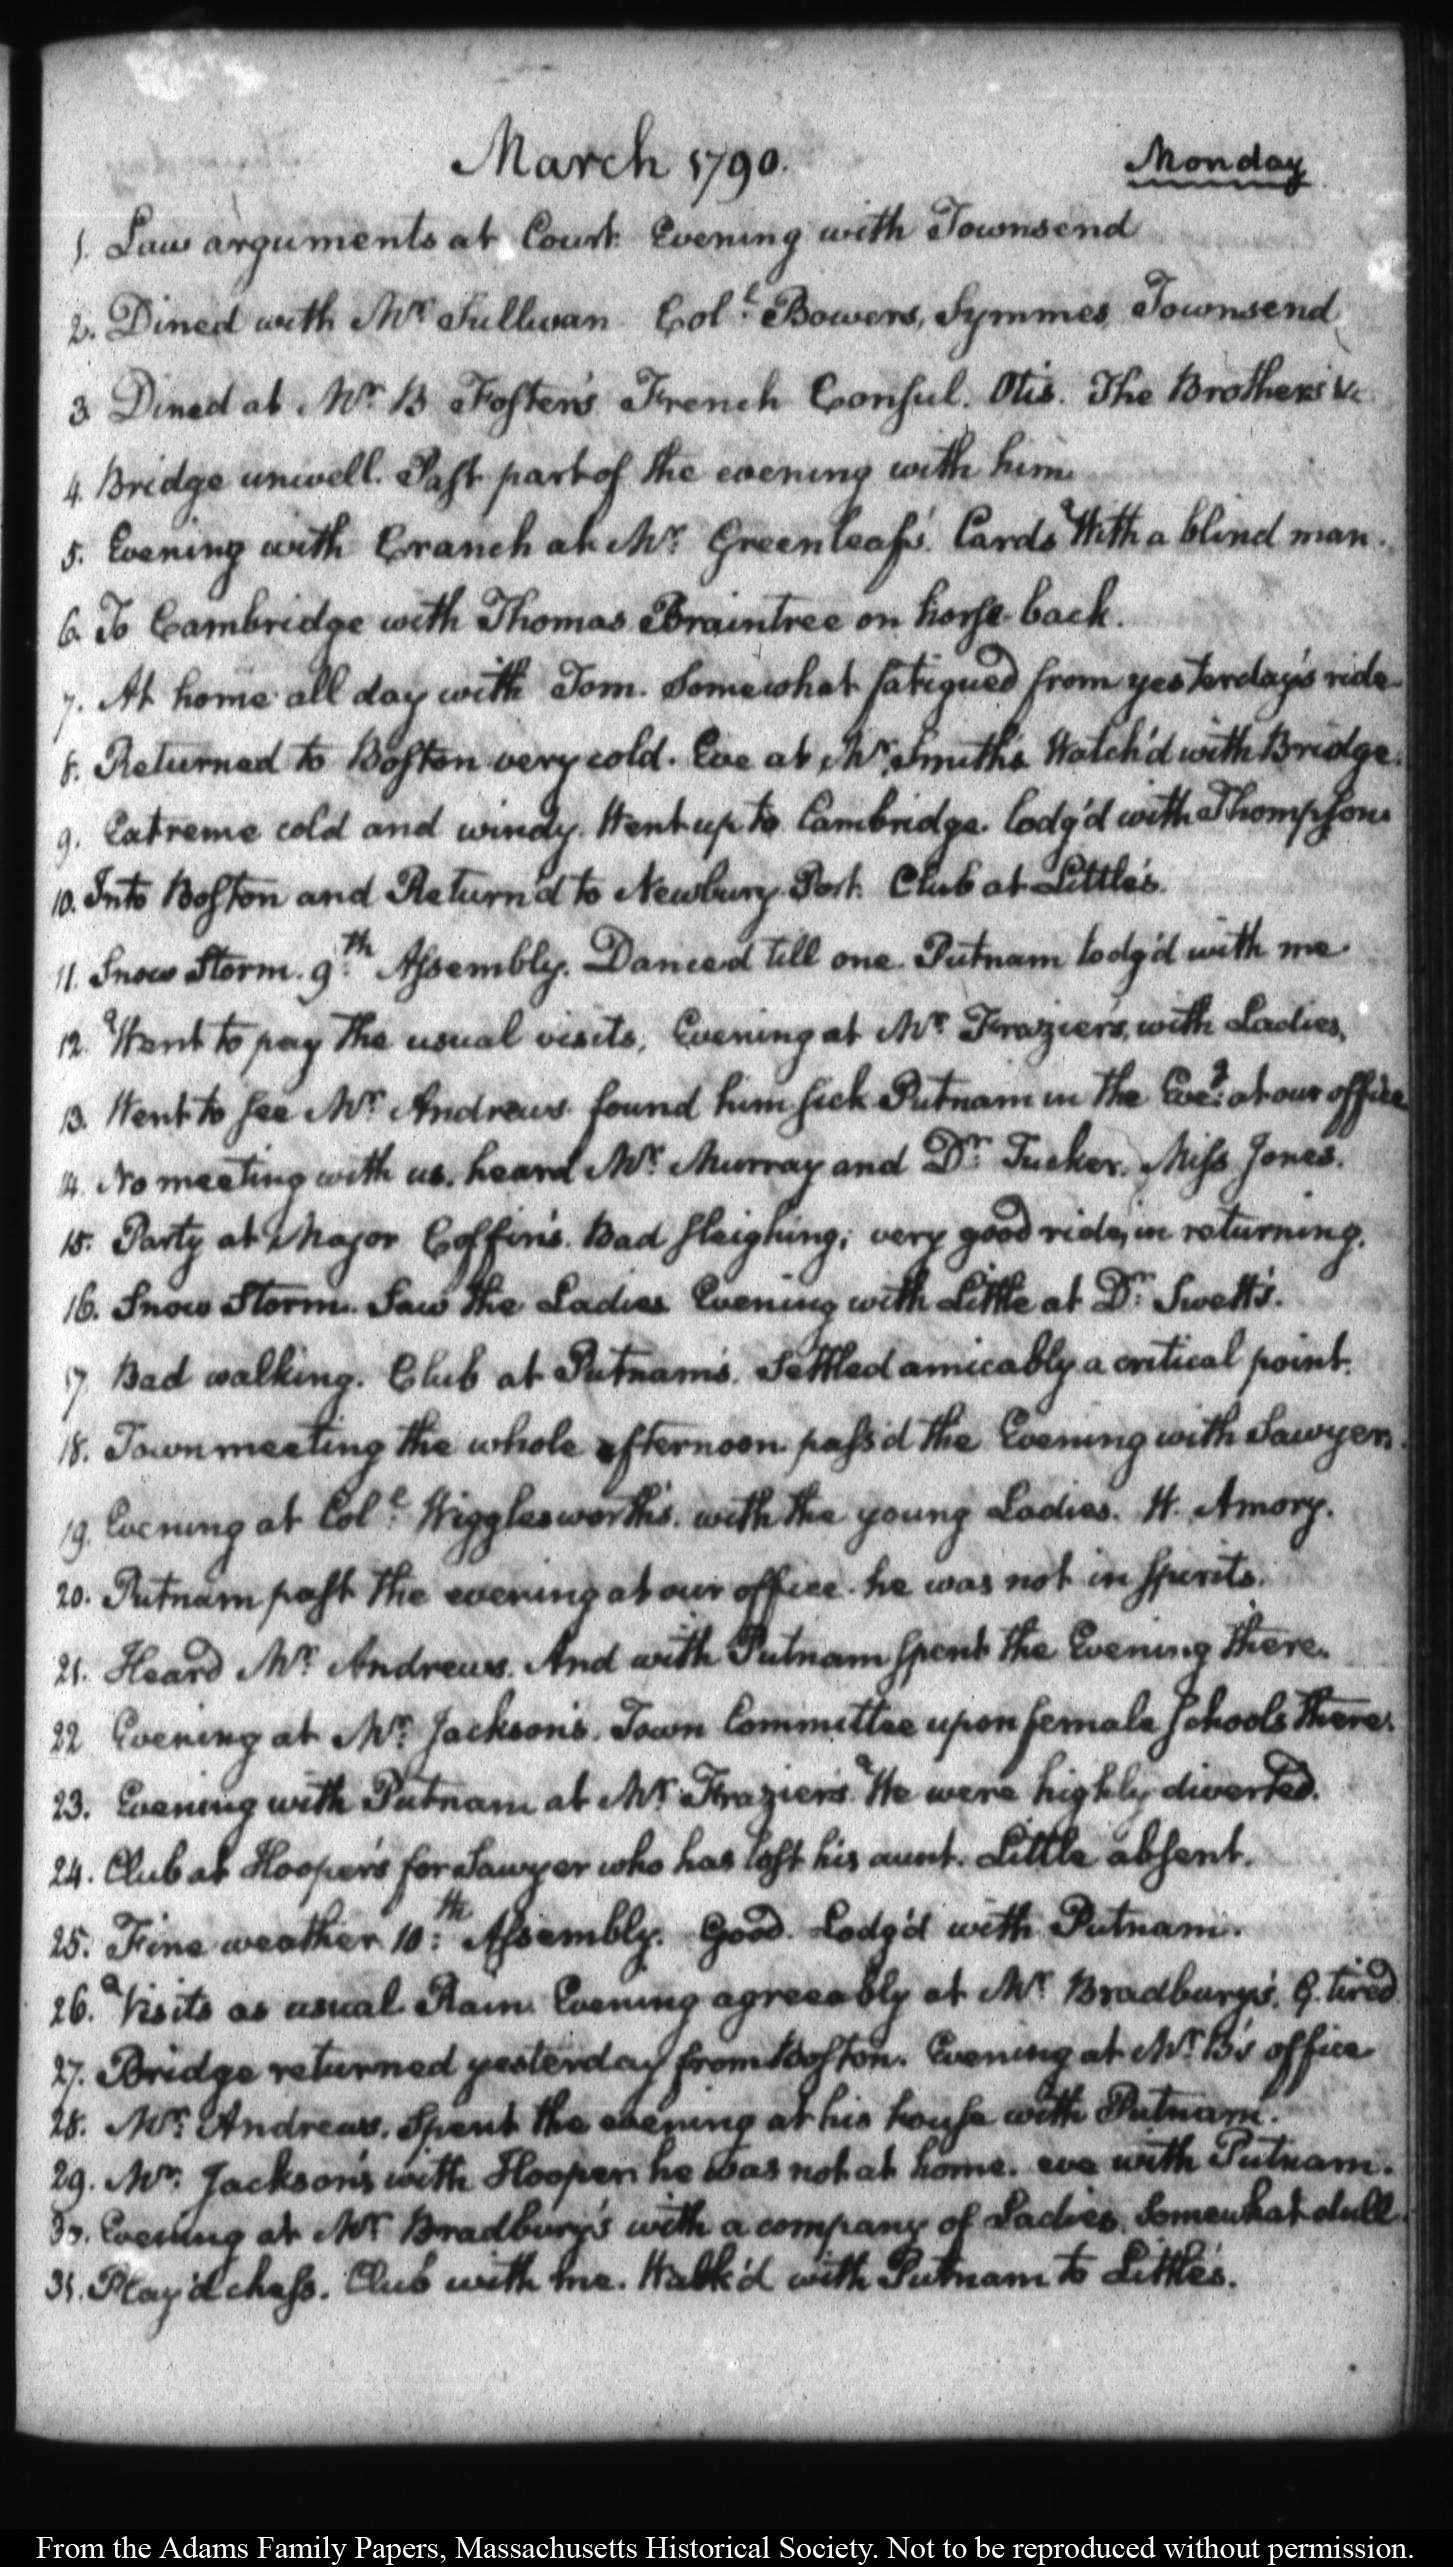 March 1790. Monday
1. Law arguments at Court. Evening with Townsend
2. Dined with Mr. Sullivan Coll. Bowers, Symmes, Townsend
3 Dined at Mr. B Foster's French Consul. Otis. The Brothers &c
4. Bridge unwell. Past part of the evening with him.
5. Evening with Cranch at Mr. Greenleaf's. Cards. With a blind man.
6. To Cambridge with Thomas Braintree on horse-back.
7. At home all day with Tom. Somewhat fatigued from yesterday's ride
8. Returned to Boston very cold. Eve at Mr. Smith's Watch'd with Bridge.
9. Extreme cold and windy. Went up to Cambridge. lodg'd with Thompson.
10. Into Boston and Return'd to Newbury-Port. Club at Little's.
11. Snow Storm. 9th. Assembly. Danced till one. Putnam lodg'd with me.
12. Went to pay the usual visits, Evening at Mr. Frazier's, with Ladies.
13. Went to see Mr. Andrews. found him sick Putnam in the Eveg. at our office.
14. No meeting with us. heard Mr. Murray and Dr. Tucker. Miss Jones.
15. Party at Major Coffin's. Bad sleighing; very good ride, in returning.
16. Snow Storm. Saw the Ladies Evening with Little at Dr. Swett's.
17 Bad walking. Club at Putnam's. Settled amicably a critical point.
18. Town meeting the whole afternoon. pass'd the Evening with Sawyer.
19. Evening at Coll. Wigglesworth's. with the young Ladies. W. Amory.
20. Putnam past the evening at our office. he was not in spirits.
21. Heard Mr. Andrews. And with Putnam spent the Evening there.
22 Evening at Mr. Jackson's. Town Committee upon female schools there.
23. Evening with Putnam at Mr. Frazier's. We were highly diverted.
24. Club at Hooper's for Sawyer who has lost his aunt. Little absent.
25. Fine weather 10th. Assembly. Good. Lodg'd with Putnam.
26. Visits as usual. Rain. Evening agreeably at Mr. Bradbury's. G. tired
27. Bridge returned yesterday from Boston. Evening at Mr. B's office
28. Mr. Andrews. Spent the evening at his house with Putnam.
29. Mr. Jackson's with Hooper. he was not at home. eve with Putnam.
30. Evening at Mr. Bradbury's with a company of Ladies. Somewhat dull.
31. Play'd chess. Club with me. Walk'd with Putnam to Little's.
From the Adams Family Papers, Massachusetts Historical Society. Not to be reproduced without permission.